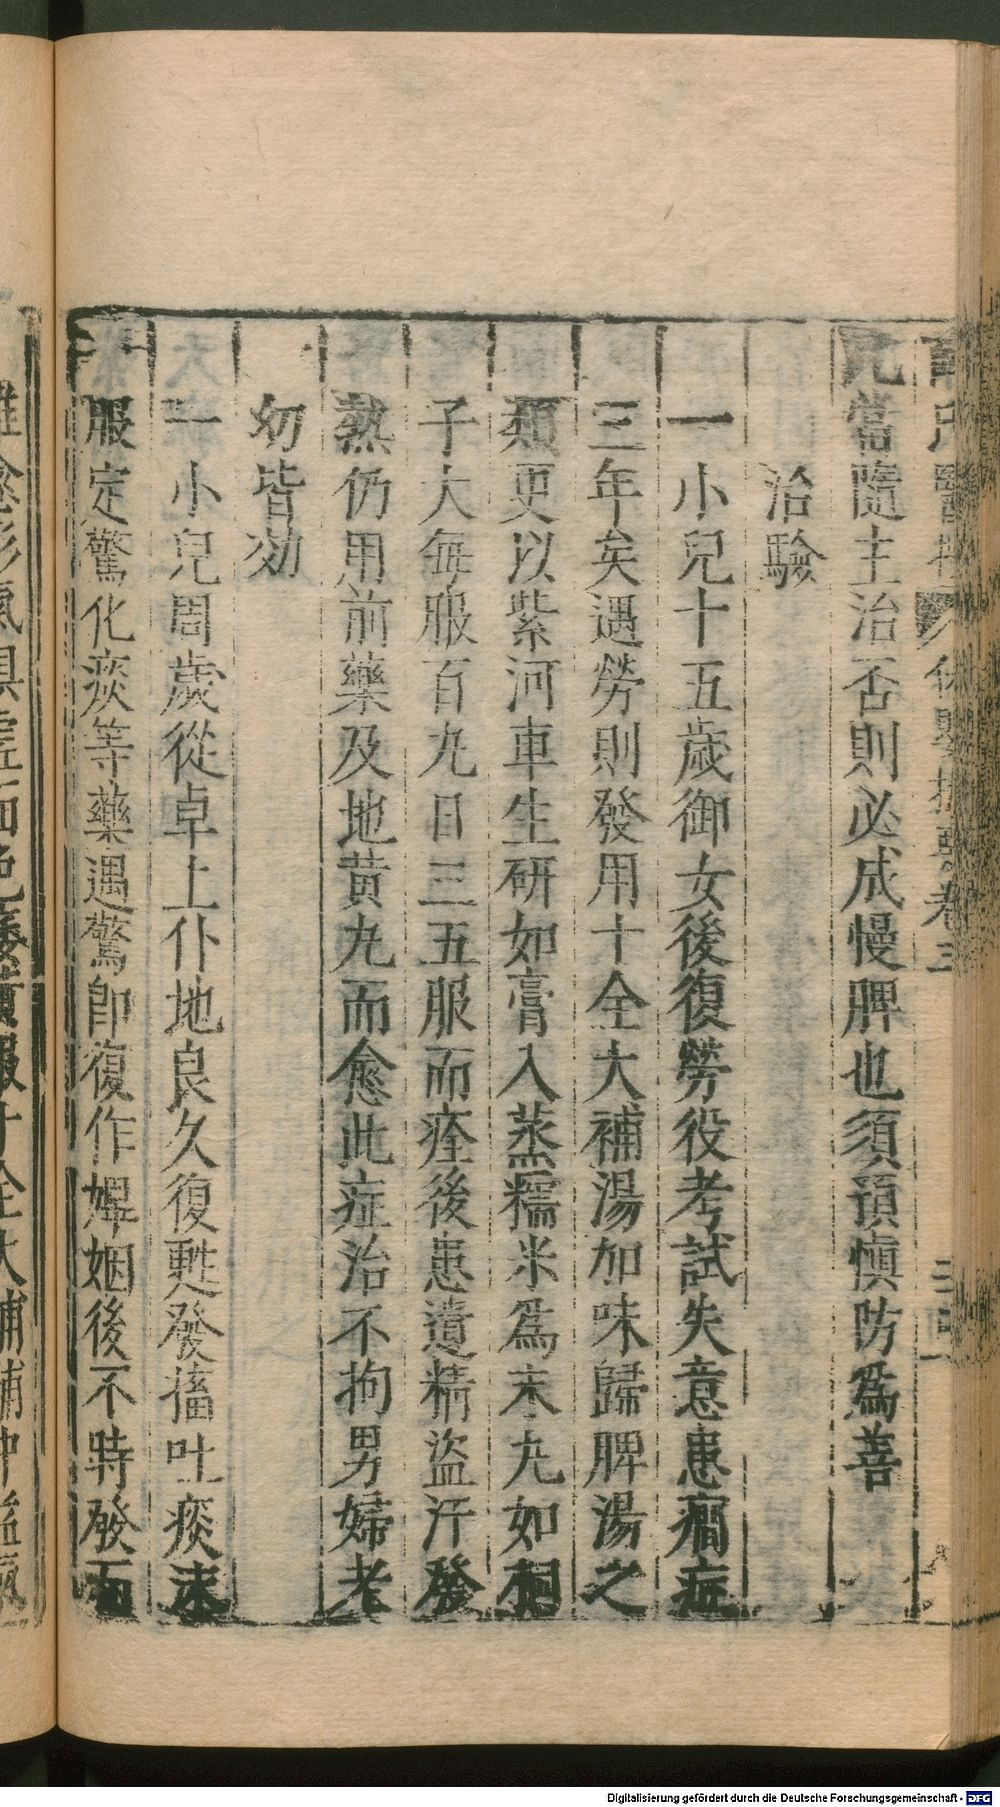 凡當隨主治否則必成慢脾也須預慎防爲善
治驗
一小兒十五歲御女後復勞役考試失意患癇症
三年矣遇勞則發用十全大補湯加味歸脾湯之
類更以紫河車生研如膏入蒸糯米爲末丸如桐
子大每服百丸日三五服而痊後患遺精盜汗發
熱仍用前藥及地黃丸而愈此症治不拘男婦老
幼皆効
一小兒周歲從卓上仆地良久復甦發搐吐痰
服定驚化痰等藥遇驚卽復作婢姻後不時發而
Digitalisierung gefördert durch die Deutsche Forschungsgemeinschaft - DFG